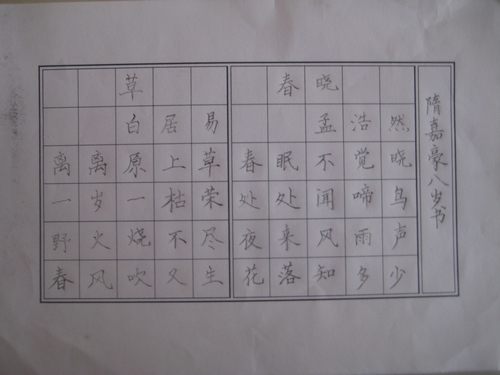 草
白居易
离离原上草
一岁一枯荣
野火烧不尽
春风吹又生
春晓
孟浩然
春眠不觉晓
处处闻啼鸟
夜来风雨声
花落知多少
隋嘉豪八岁书